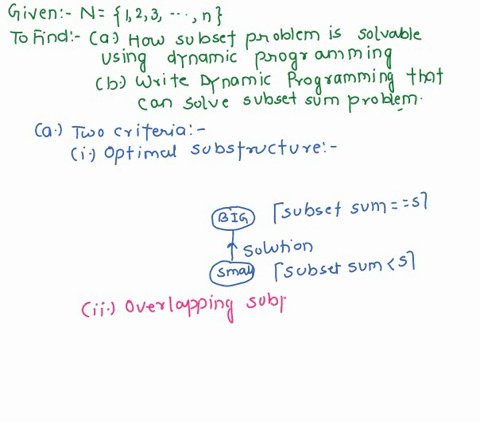 Given:- N= {1,2,3, ---, n}
To Find:- (a) How subset problem is solvable
using dynamic programming
(b.) Write Dynamic Programming that
can solve subset sum problem.
(a.) Two criteria:-
(i.) Optimal substructure:-
BIG [subset sum==s]
solution
small [subset sum<s]
(ii.) Overlapping sub